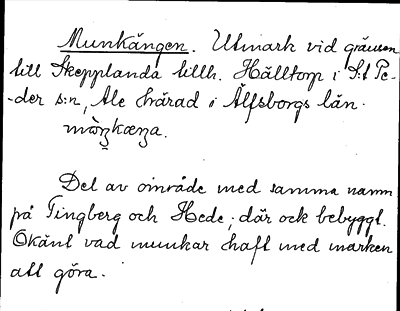 Munkängen. Utmark vid gränsen
till Skepplanda tillh. Hälltorp i S:t Pe-
-der s:n, Ale härad i Älfsborgs län.
Del av område med samma namn
på Tingberg och Hede; där ock bebyggt.
Okänt vad munkar haft med marken
att göra.